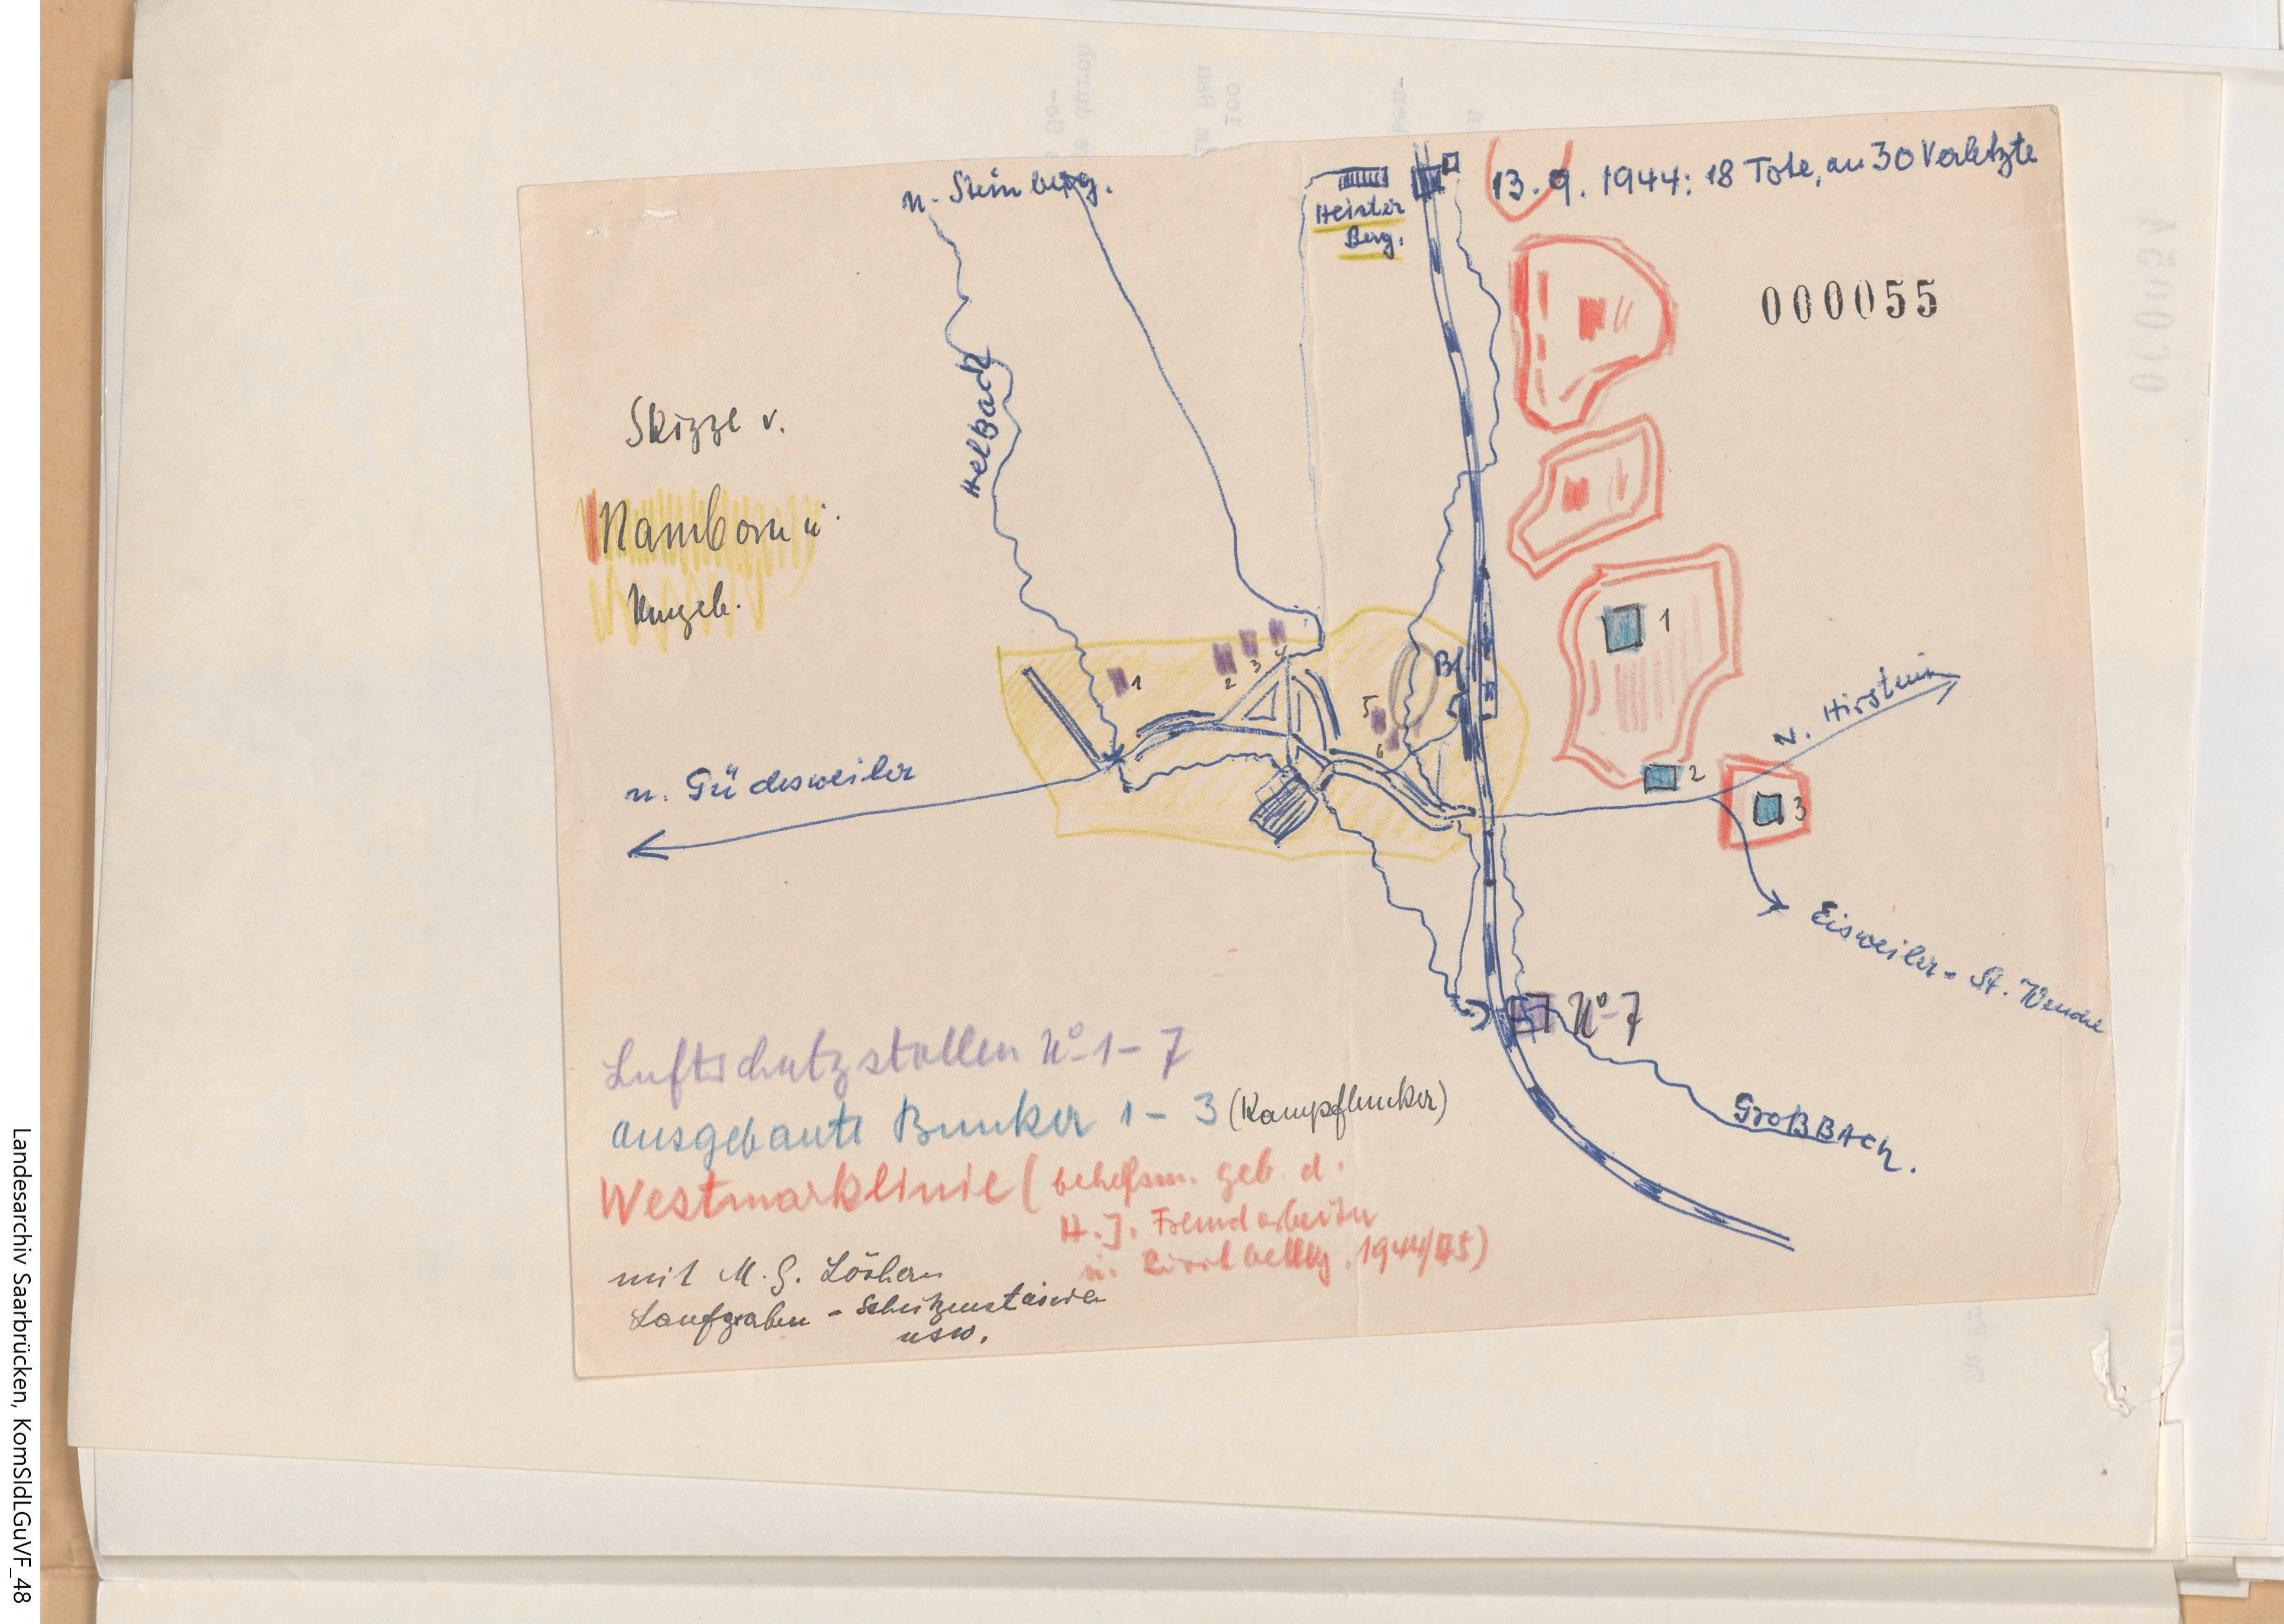 n. Steinberg.
Heister
Berg.
13. 9. 1944: 18 Tote, an 30 Verletzte
000055
000054
Helbach
Skizze v.
Namborn u.
Umgeb.
1
2
3
4
5
6
Bf
1
2
3
n. Hirstein
n. Güdesweiler
Eisweiler - St. Wendel
No 7
Großbach.
Luftschutzstollen No 1 - 7
ausgebaute Bunker 1 - 3 (Kampfbunker)
Westmarklinie ( behelfsm. geb. d.
H.J. Fremdarbeiter
u. Zivilbevölkg. 1944/45)
mit M.G. Löchern
Laufgraben - Schützenstände
usw.
Landesarchiv Saarbrücken, KomSldLGuVF_48